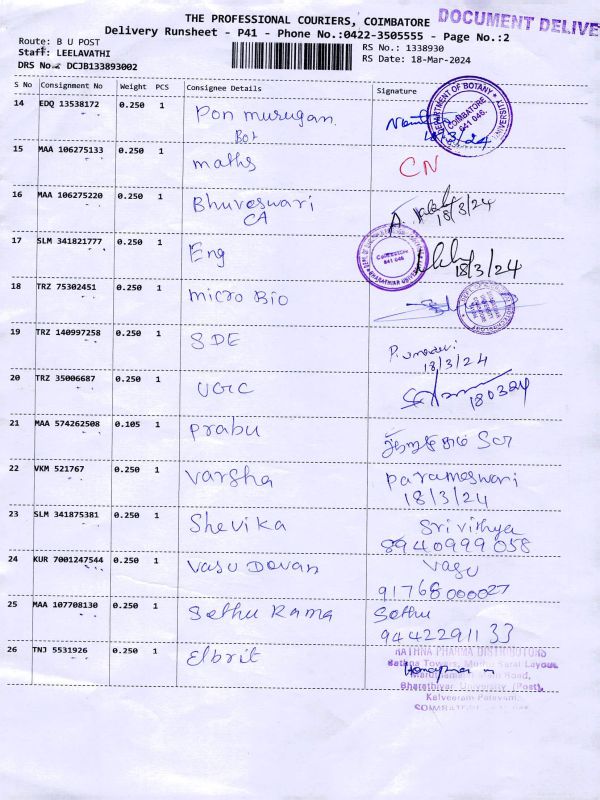 THE PROFESSIONAL COURIERS, COIMBATORE
DOCUMENT DELIVE
Delivery Runsheet - P41 - Phone No.:0422-3505555 - Page No.:2
Route: B U POST
RS No.: 1338930
Staff: LEELAVATHI
RS Date: 18-Mar-2024
DRS No.: DCJB133893002
S No Consignment No Weight PCS Consignee Details Signature
14 EDQ 13538172 0.250 1 Pon murugan
Bot
18/3/24
DEPARTMENT OF BOTANY
COIMBATORE
641 046.
15 MAA 106275133 0.250 1 maths CN
16 MAA 106275220 0.250 1 Bhuveswari
CA
18/3/24
17 SLM 341821777 0.250 1 Eng 18/3/24
641 046
18 TRZ 75302451 0.250 1 micro Bio
19 TRZ 140997258 0.250 1 SDE
18/3/24
20 TRZ 35006687 0.250 1 UGC 180324
21 MAA 574262508 0.105 1 Prabu
22 VKM 521767 0.250 1 Varsha Parameswari
18/3/24
23 SLM 341875381 0.250 1 Shevika Srivithya
8940999058
24 KUR 7001247544 0.250 1 Vasu Devan Vasu
91768000027
25 MAA 107708130 0.250 1 Sethu Rama Sethu
9442291133
26 TNJ 5531926 0.250 1 Elbrit
RATHNA PHARMA DISTRIBUTORS
Rathna Towers, Layout,
Road,
Bharathiyar University (Post),
Kalveeram Palayam,